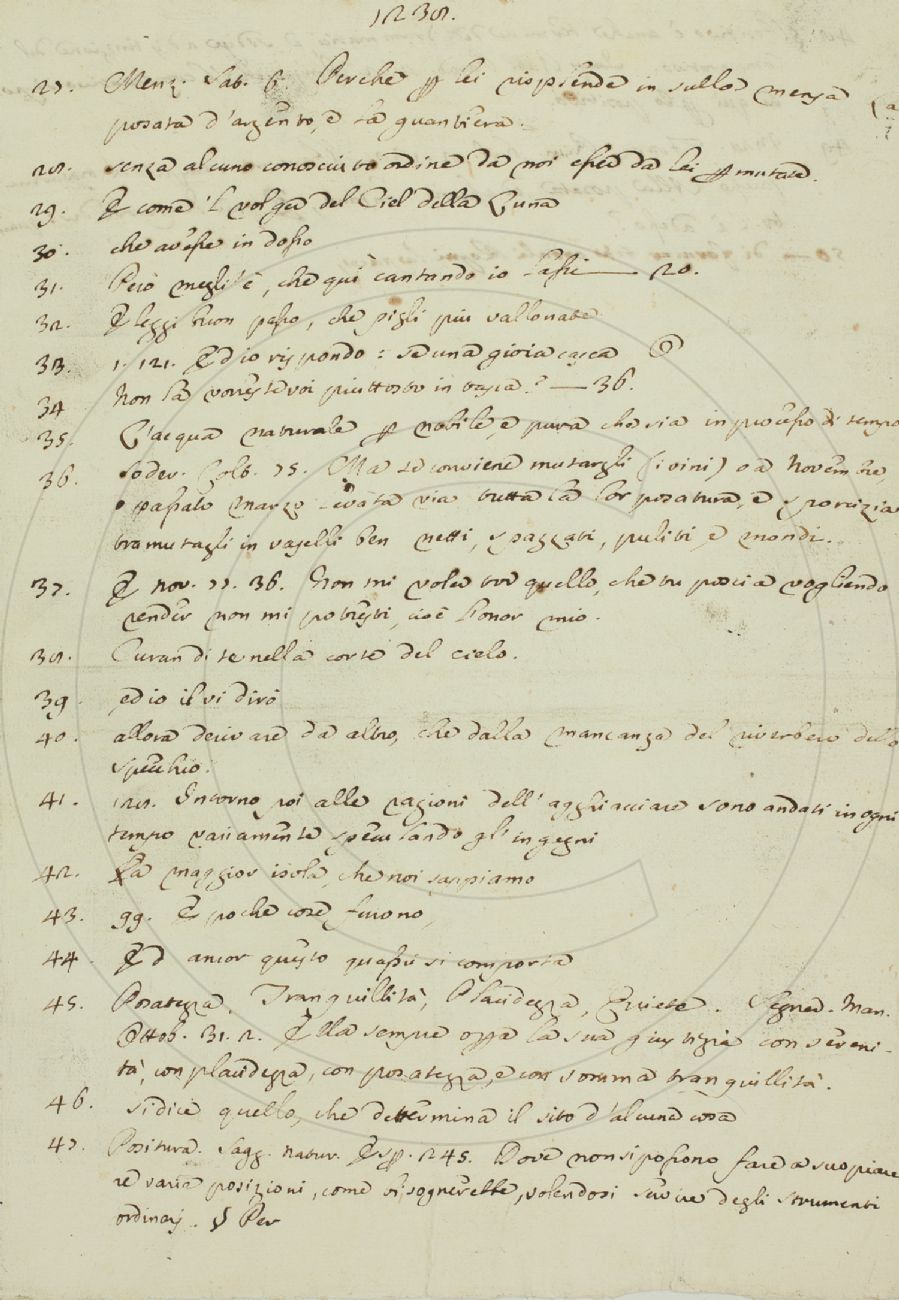 1238.
27. Menz. Sat. 6. Perche p lei risplende in sulla mensa
posata d'argento, e la guantiera.
28. senza alcuno conosciuto ordine da noi essa da lei
29. E come 'l volger del Ciel della Luna
30. che avesse in dosso
31. Però megli' è, che quì cantando io lassi — 20.
32. E leggi buon passo, che pigli piu vallonate
33. 1. 121. Ed io rispondo: se una gioia casca
34 Non la vorreste voi piuttosto in tasca? — 36.
35. L'acqua naturale p nobile, e pura che sia in processo di tempo
36. Soder. Colt. 75. Ma se conviene mutargli (i vini) o a Novembre,
o passato marzo levata via tutta la lor posatura, e sporcizia
tramutagli in vaselli ben netti, spazzati, puliti, e mondi.
37. E nov. 77. 36. Non mi voler tor quello, che tu poscia vogliendo
render non mi potresti, cioè l'onor mio.
38. Curan di te nella corte del cielo.
39. ed io il vi dirò
40. allora derivare da altro, che dalla mancanza del riverbero dello
specchio.
41. 128. Intorno poi alle cagioni dell'agghiacciare sono andati in ogni
tempo variamente speculando gl'ingegni
42. La maggior isola, che noi sappiamo
43. 99. E poche cose furono,
44. Ed ancor questo quassù si comporta
45. Posatezza, Tranquillità, Placidezza, Quiete. Segner. Man.
Ottob. 31. 2. Ella sempre opra la sua giustizia con sereni-
tà, con placidezza, con posatezza, e con somma tranquillità.
46. si dice quello, che determina il sito d'alcuna cosa
47. Positura. Sagg. natur. Esp. 245. Dove non si possono fare a suo piace
re varie posizioni, come bisognerebbe, volendosi servire degli strumenti
ordinarj. § Per